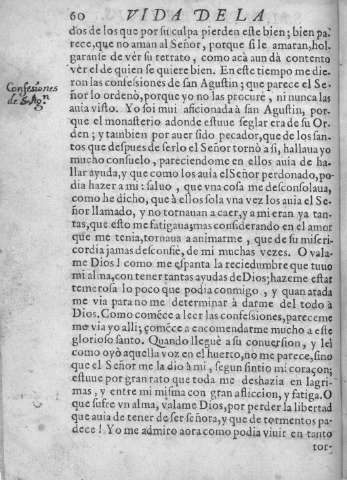 60 VIDA DE LA
dos de los que por su culpa pierden este bien; bien pa-
rece, que no aman al Señor, porque si le amaran, hol
garanse de vèr su retrato, como acà aun dà contento
vèr el de quien se quiere bien. En este tiempo me die-
ron las confesiones de san Agustin; que parece el Se-
Confesiones
de S. Agn
ñor lo ordenò, porque yo no las procurè, ni nunca las
auia visto. Yo soi mui aficionadà à san Agustin, por-
que el monasterio adonde estuue seglar era de su Or-
den; y tambien por auer sido pecador, que de los san-
tos que despues de serlo el Señor tornò a si, hallaua yo
mucho consuelo, pareciendome en ellos auia de ha-
llar ayuda, y que como los auia el Señor perdonado, po
dia hazer a mi: saluo, que vna cosa me desconsolaua,
como he dicho, que à ellos sola vna vez los auia el Se-
ñor llamado, y no tornauan a caer, y a mi eran ya tan-
tas, que esto me fatigaua; mas considerando en el amor
que me tenia, tornaua a animarme, que de su miseri-
cordia jamas desconfiè, de mi muchas vezes. O vala-
me Dios! como me espanta la reciedumbre que tuuo
mi alma, con tener tantas ayudas de Dios; hazeme estar
temerosa lo poco que podia conmigo, y quan atada
me via para no me determinar à darme del todo à
Dios. Como comēce a leer las confessiones, pareceme
me via yo alli; comēce a encomendarme mucho a este
glorioso santo. Quando lleguè a su conuersion, y leì
como oyò aquella voz en el huerto, no me parece, sino
que el Señor me la dio à mi, segun sintio mi coraçon;
estuue por gran rato que toda me deshazia en lagri-
mas, y entre mi misma con gran afliccion, y fatiga. O
que sufre vn alma, valame Dios, por perder la libertad
que auia de tener de ser señora, y que de tormentos pa-
dece! Yo me admiro aora como podia viuir en tanto
tor-